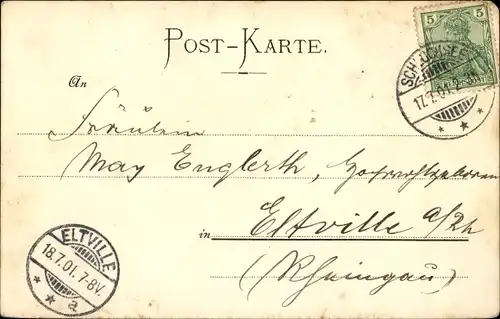 5 5
SCHLUCHSEE
17.7.01.
POST-KARTE.
An
Fräulein
May Englerth,
in Eltville a/Rh
(Rheingau)
ELTVILLE
18.7.01.7-8V.
a